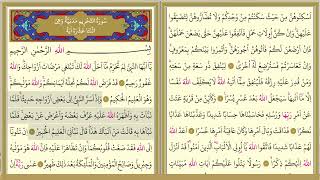 اَسْكِنُوهُنَّ مِنْ حَيْثُ سَكَنْتُمْ مِنْ وُجْدِكُمْ وَلَا تُضَٓارُّوهُنَّ لِتُضَيِّقُوا
عَلَيْهِنَّۜ وَاِنْ كُنَّ اُو۬لَاتِ حَمْلٍ فَاَنْفِقُوا عَلَيْهِنَّ حَتّٰى يَضَعْنَ حَمْلَهُنَّۚ
فَاِنْ اَرْضَعْنَ لَكُمْ فَاٰتُوهُنَّ اُجُورَهُنَّۚ وَأْتَمِرُوا بَيْنَكُمْ بِمَعْرُوفٍۚ
وَاِنْ تَعَاسَرْتُمْ فَسَتُرْضِعُ لَهُٓ اُخْرٰىۜ لِيُنْفِقْ ذُو سَعَةٍ مِنْ سَعَتِهٖۜ وَمَنْ
قُدِرَ عَلَيْهِ رِزْقُهُ فَلْيُنْفِقْ مِمَّٓا اٰتٰيهُ اللّٰهُۜ لَا يُكَلِّفُ اللّٰهُ نَفْسًا
اِلَّا مَٓا اٰتٰيهَاۜ سَيَجْعَلُ اللّٰهُ بَعْدَ عُسْرٍ يُسْرًا وَكَاَيِّنْ مِنْ قَرْيَةٍ عَتَتْ
عَنْ اَمْرِ رَبِّهَا وَرُسُلِهٖ فَحَاسَبْنَاهَا حِسَابًا شَدِيدًا وَعَذَّبْنَاهَا عَذَابًا
نُكْرًا فَذَاقَتْ وَبَالَ اَمْرِهَا وَكَانَ عَاقِبَةُ اَمْرِهَا خُسْرًا اَعَدَّ اللّٰهُ
لَهُمْ عَذَابًا شَدِيدًا فَاتَّقُوا اللّٰهَ يَٓا اُو۬لِي الْاَلْبَابِ الَّذِينَ اٰمَنُوا قَدْ اَنْزَلَ
اللّٰهُ اِلَيْكُمْ ذِكْرًا رَسُولًا يَتْلُوا عَلَيْكُمْ اٰيَاتِ اللّٰهِ مُبَيِّنَاتٍ
سُورَةُ التَّحْرِيمِ مَدَنِيَّةٌ وَهِيَ
اثْنَتَا عَشْرَةَ اٰيَةً
بِسْمِ اللّٰهِ الرَّحْمٰنِ الرَّحِيمِ
يَٓا اَيُّهَا النَّبِيُّ لِمَ تُحَرِّمُ مَٓا اَحَلَّ اللّٰهُ لَكَۚ تَبْتَغِي مَرْضَاتَ اَزْوَاجِكَۜ وَاللّٰهُ
غَفُورٌ رَحِيمٌ قَدْ فَرَضَ اللّٰهُ لَكُمْ تَحِلَّةَ اَيْمَانِكُمْۚ وَاللّٰهُ مَوْلٰيكُمْۚ
وَهُوَ الْعَلِيمُ الْحَكِيمُ وَاِذْ اَسَرَّ النَّبِيُّ اِلٰى بَعْضِ اَزْوَاجِهٖ حَدِيثًاۚ فَلَمَّا
نَبَّاَتْ بِهٖ وَاَظْهَرَهُ اللّٰهُ عَلَيْهِ عَرَّفَ بَعْضَهُ وَاَعْرَضَ عَنْ بَعْضٍۚ فَلَمَّا
نَبَّاَهَا بِهٖ قَالَتْ مَنْ اَنْبَاَكَ هٰذَاۜ قَالَ نَبَّاَنِيَ الْعَلِيمُ الْخَبِيرُ اِنْ
تَتُوبَٓا اِلَى اللّٰهِ فَقَدْ صَغَتْ قُلُوبُكُمَاۚ وَاِنْ تَظَاهَرَا عَلَيْهِ فَاِنَّ اللّٰهَ هُوَ مَوْلٰيهُ
وَجِبْرِيلُ وَصَالِحُ الْمُؤْمِنِينَۚ وَالْمَلٰٓئِكَةُ بَعْدَ ذٰلِكَ ظَهِيرٌ عَسٰى رَبُّهُٓ اِنْ